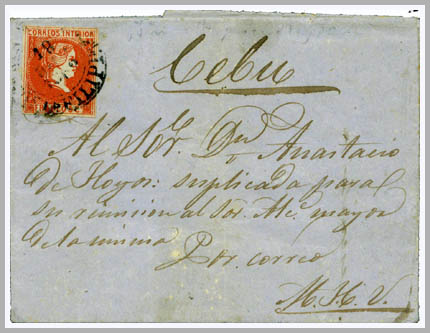 CORREOS INTERIOR
18
FILIP
Cebu
Al Sor. Dn Anastacio
de Hoyos: suplicada para
su remision al Sor. Alc. mayor
de la misma
Por correo
M. H. V.